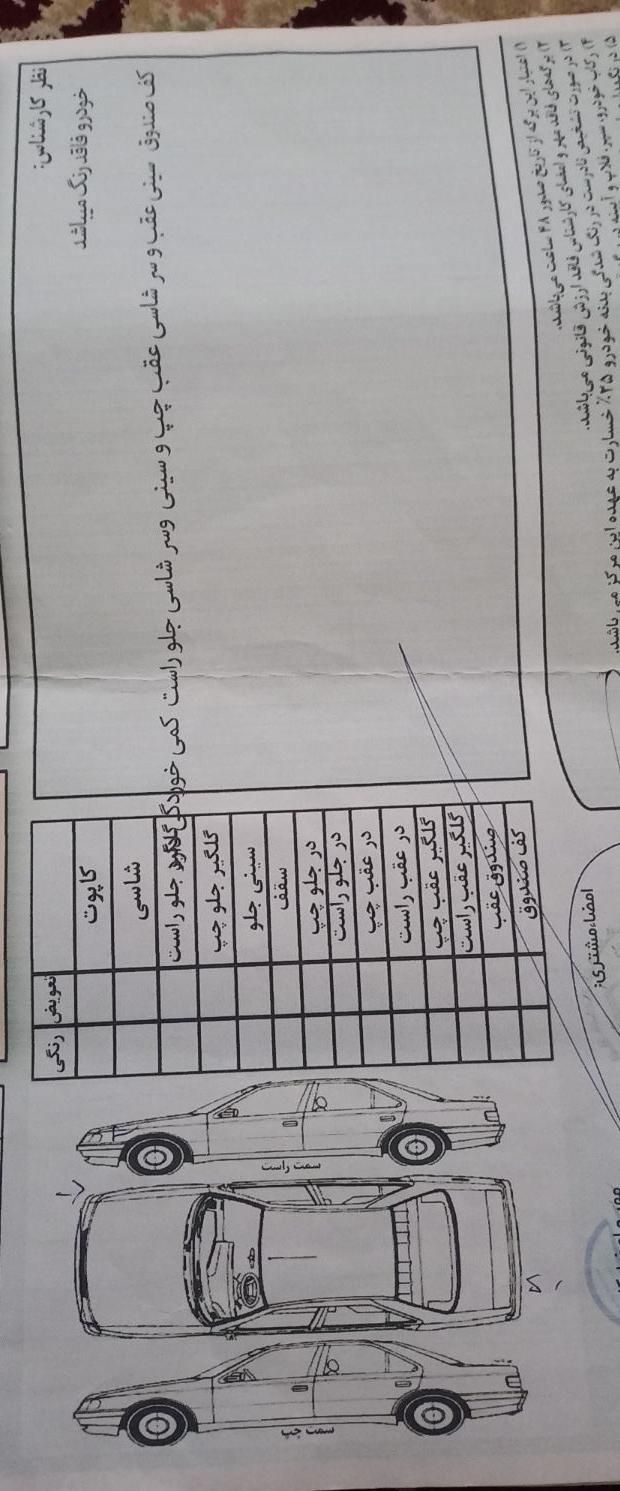 نظر کارشناس:
خودرو فاقد رنگ میباشد
کف صندوق سینی عقب و سر شاسی عقب چپ و سینی وسر شاسی جلو راست کمی خوردگی دارد
رنگی تعویض
کاپوت
شاسی
گلگیر جلو راست
گلگیر جلو چپ
سینی جلو
سقف
در جلو چپ
در جلو راست
در عقب چپ
در عقب راست
گلگیر عقب چپ
گلگیر عقب راست
صندوق عقب
کف صندوق
سمت راست
سمت چپ
۱) اعتبار این برگه از تاریخ صدور ۴۸ ساعت می‌باشد.
۲) برگه‌های فاقد مهر و امضای کارشناس فاقد ارزش قانونی می‌باشد.
۳) در صورت تشخیص نادرست در رنگ شدگی بدنه خودرو ۲۵٪ خسارت به عهده این مرکز می باشد.
۴) رکاب خودرو، سپر، قلاب و آینه
امضاء مشتری: